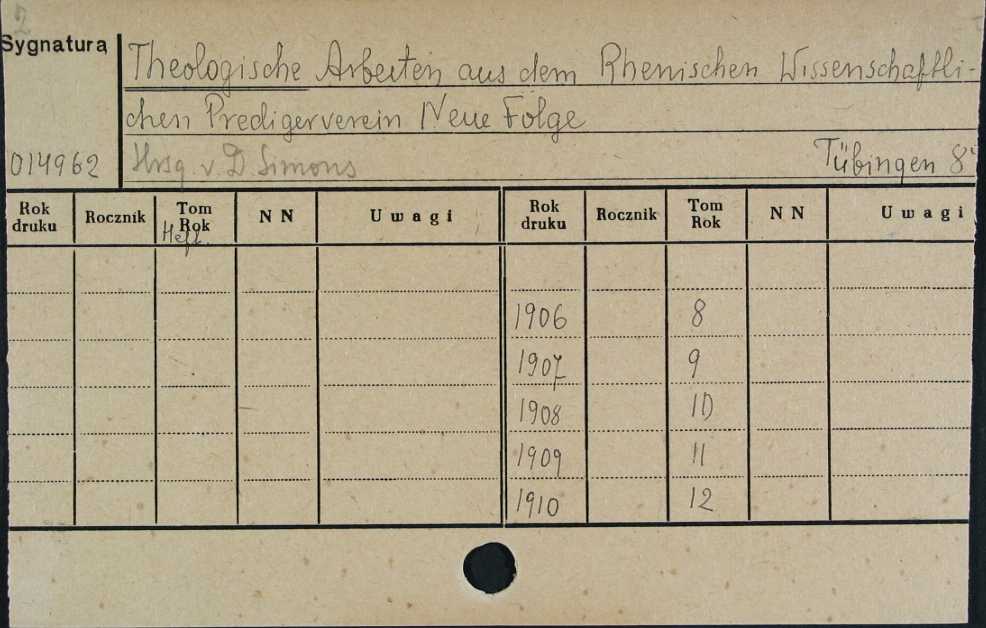 2
Sygnatura
Theologische Arbeiten aus dem Rhenischen Wissenschaftli-
chen Predigerverein Neue Folge
014962 Hrsg. v. D. Simons Tübingen 8°
Rok druku Rocznik Tom Rok NN Uwagi Rok druku Rocznik Tom Rok NN Uwagi
Heft.
1906 8
1907 9
1908 10
1909 11
1910 12